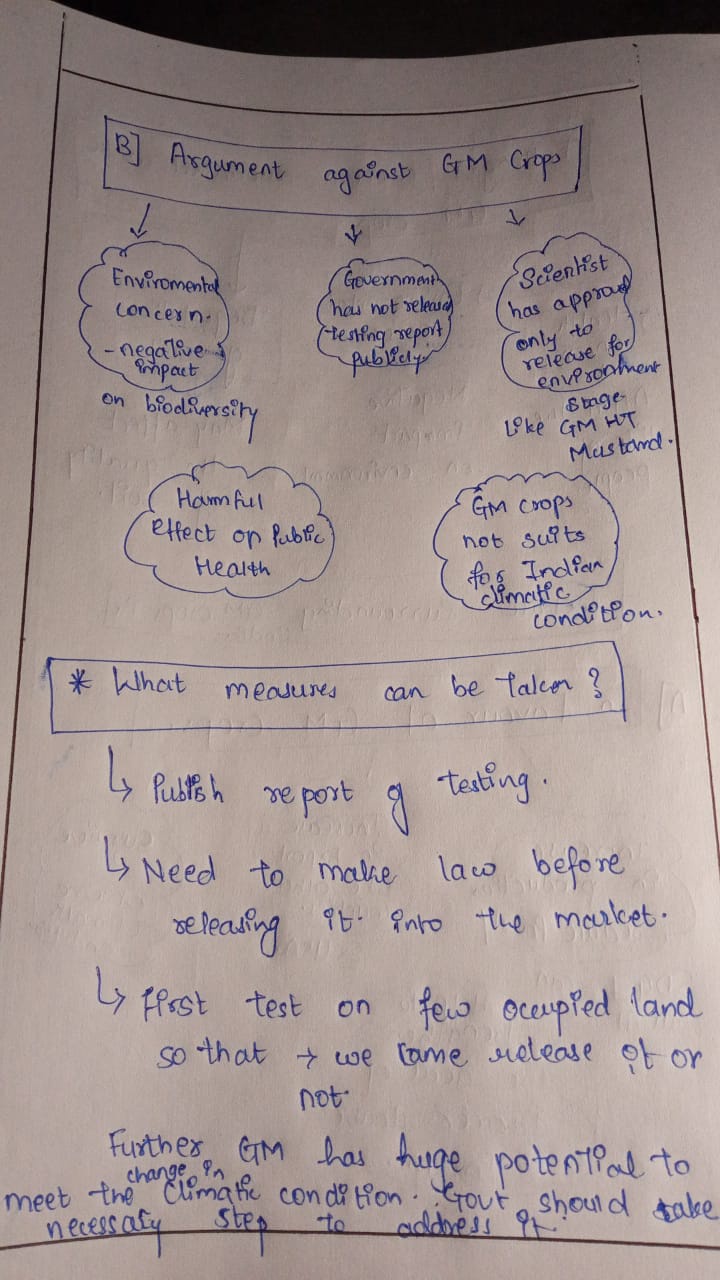 B] Argument against GM Crops
Enviromental
concern.
- negative
impact
on biodiversity
Government
has not released
testing report
publicly
Scientist
has approved
only to
release for
environment
stage
Like GM HT
Mustard.
Harmful
effect on Public
Health
GM crops
not suits
for Indian
climatic
condition.
* What measures can be taken ?
↳ Publish report of testing.
↳ Need to make law before
releasing it into the market.
↳ First test on few occupied land
so that → we came release it or
not.
Further GM has huge potential to
change in
meet the Climatic condition. Govt should take
necessary step to address it.